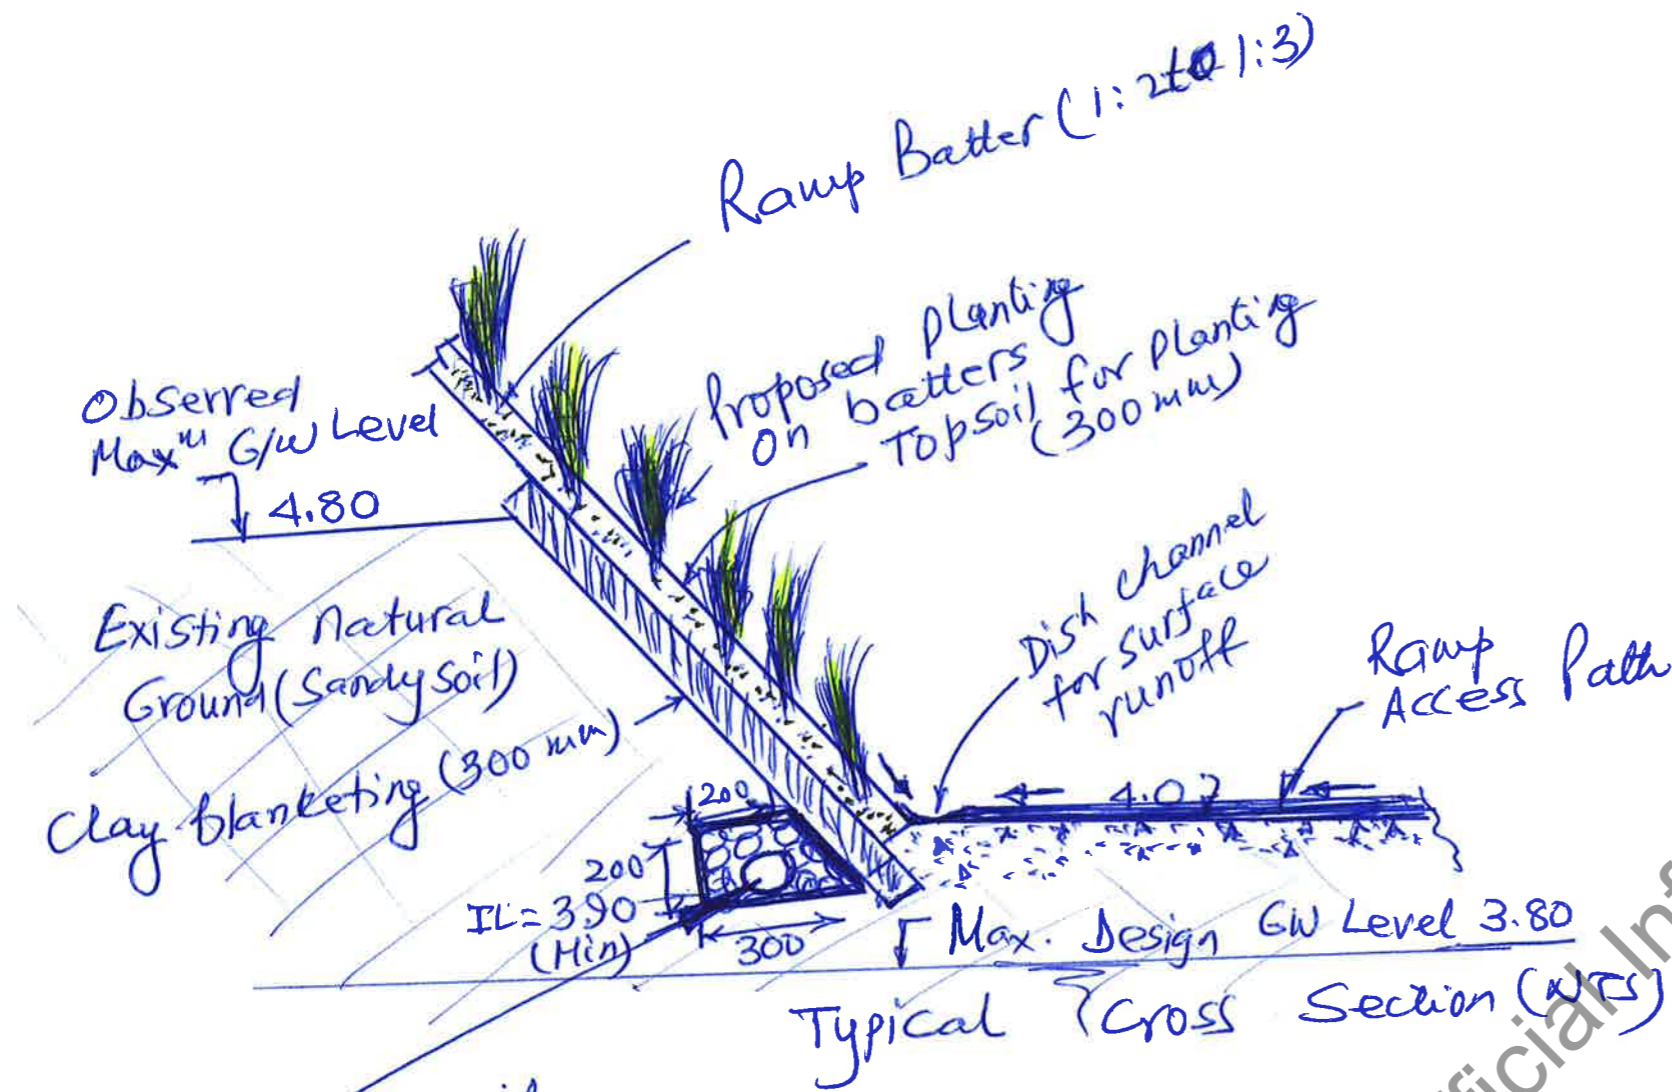 Ramp Batter (1:2 to 1:3)
Proposed planting
On batters
Topsoil for planting
(300mm)
Observed
Maxm G/W Level
4.80
Existing natural
Ground (Sandy soil)
Clay blanketing (300 mm)
Dish channel
for surface
runoff
Ramp
Access Path
200
200
IL=3.90
(Min)
300
Max. Design GW Level 3.80
Typical Cross Section (NTS)